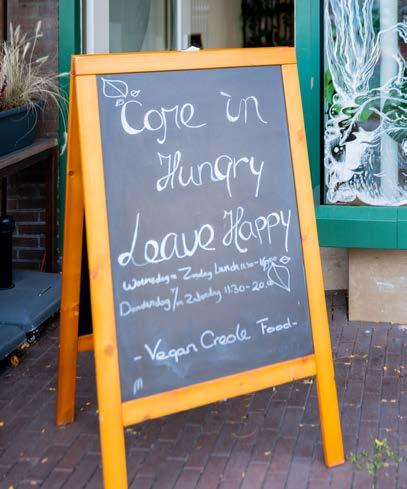 Come in
Hungry
Leave Happy
Woensdag Zondag Lunch 11:30-
Donderdag t/m Zaterdag 11:30-20.00
- Vegan Creole Food -